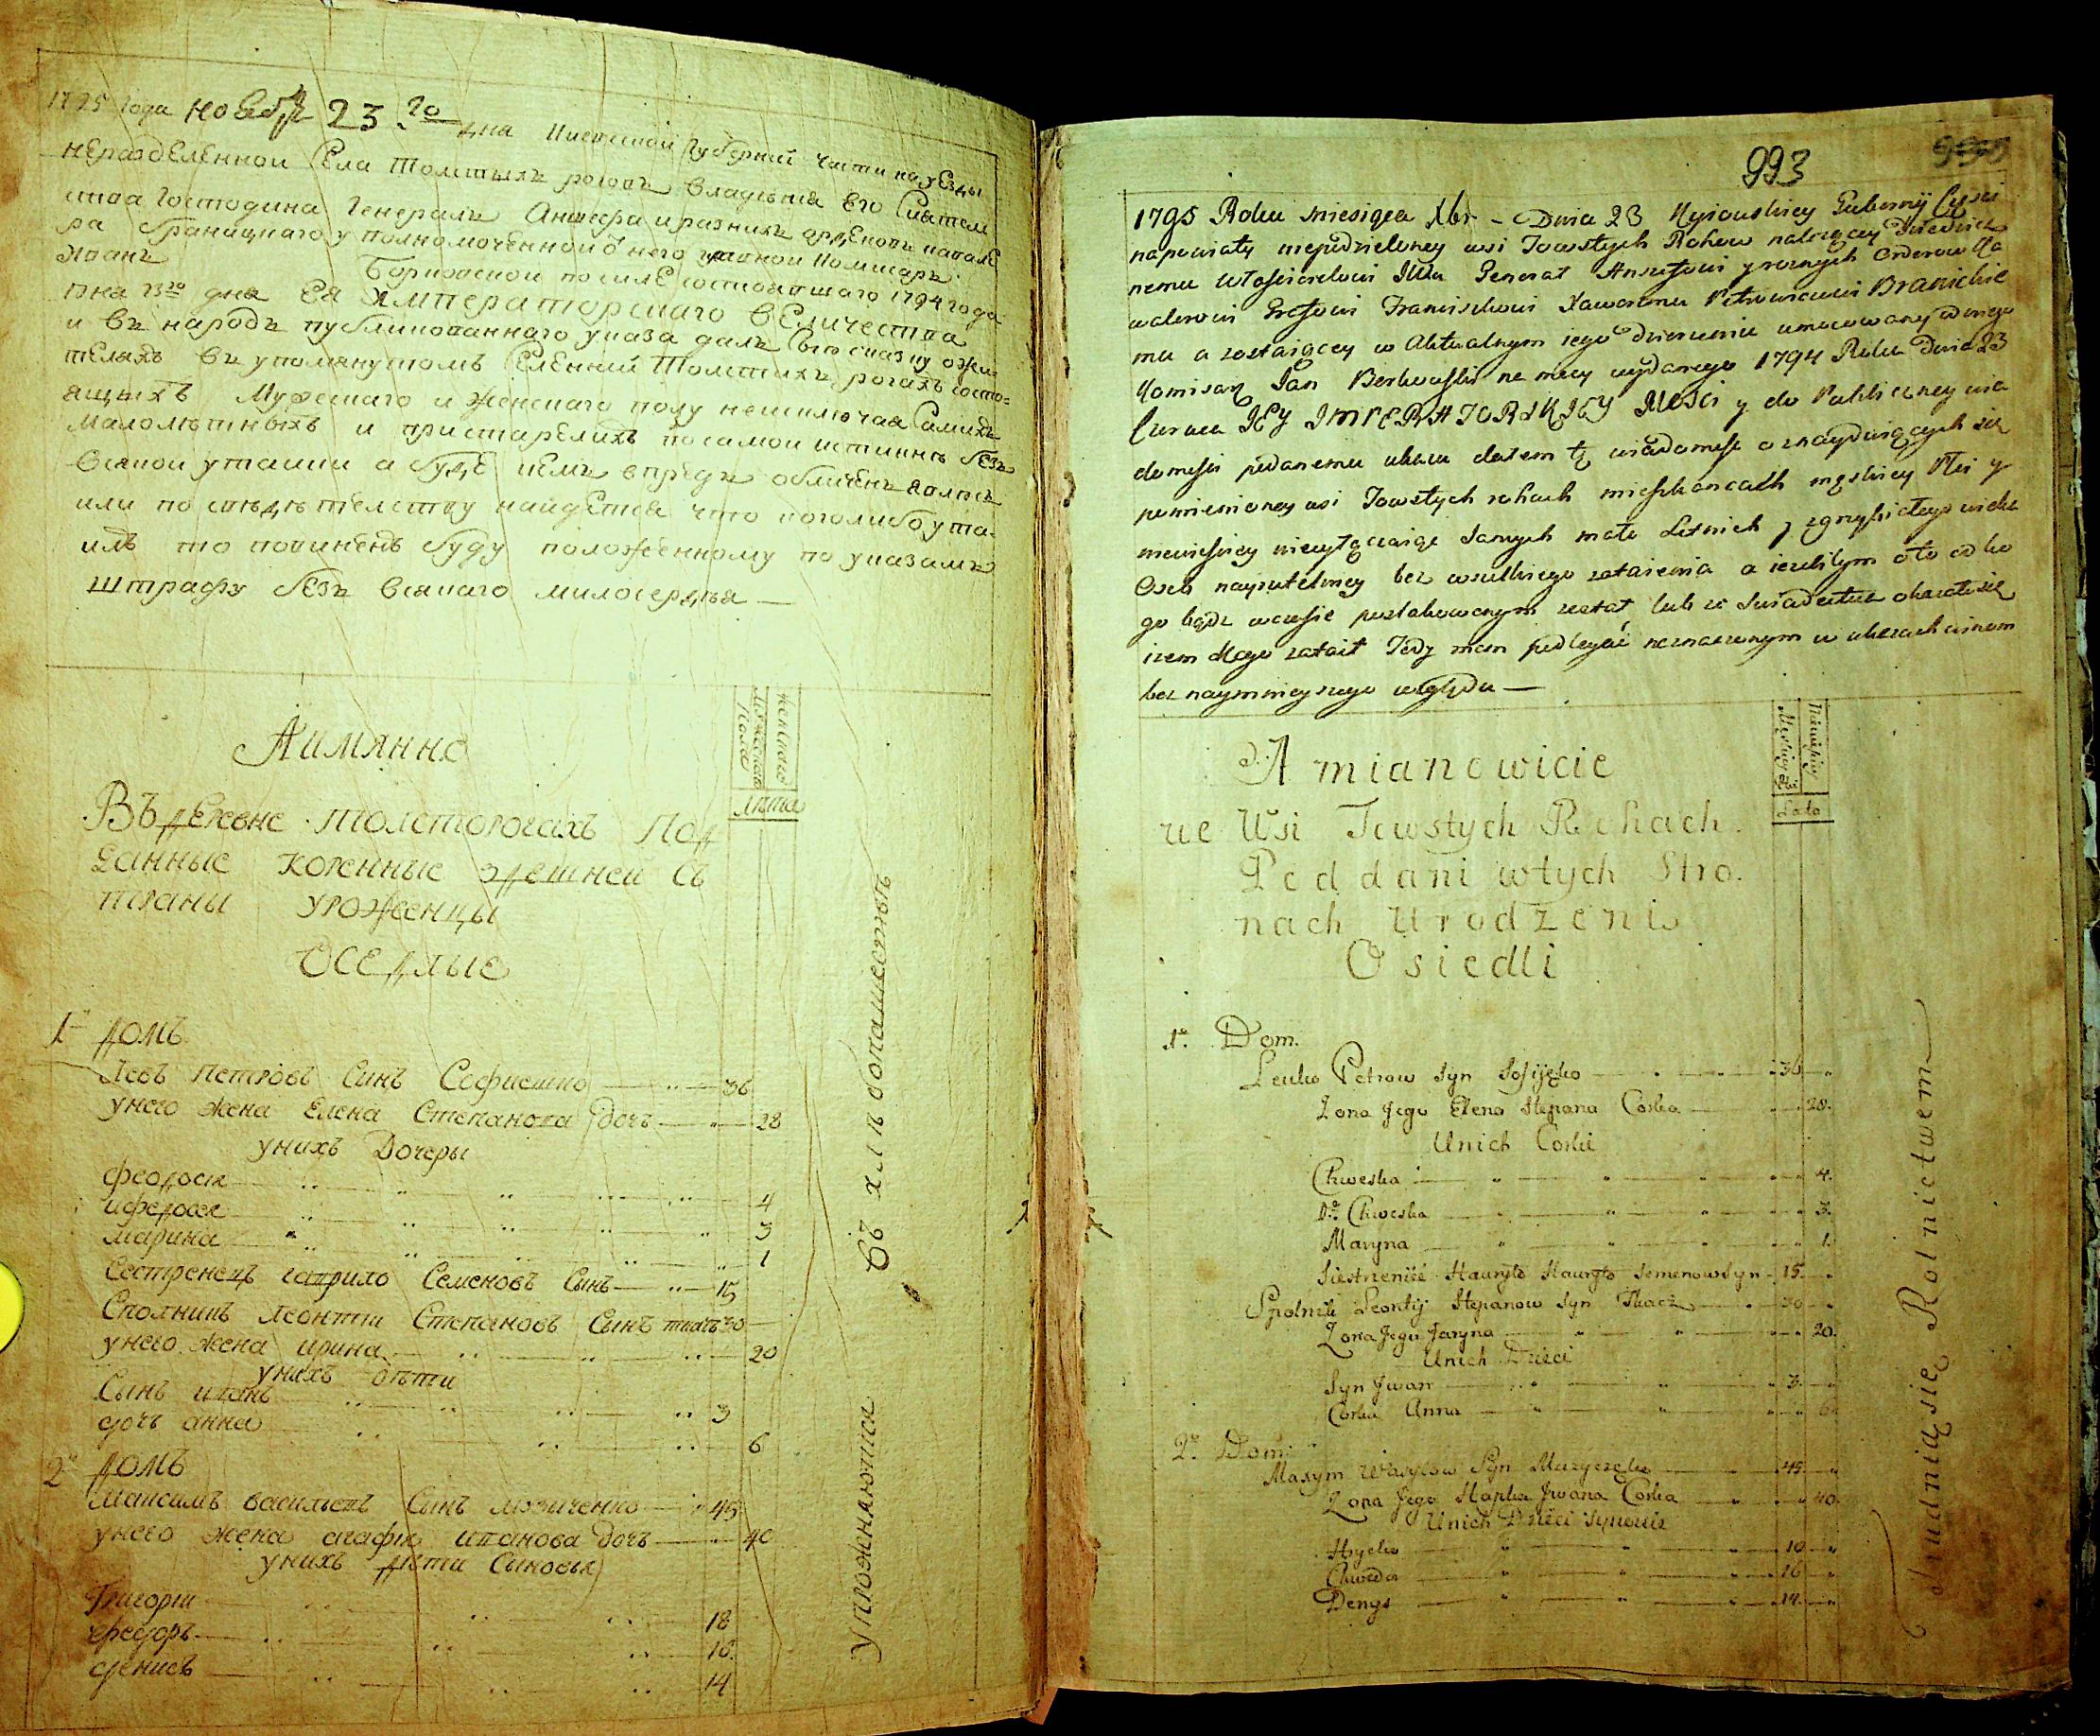 1795 года ноября 23 го дна Киевской губернии части на уезды
неразделенной села Толстыхъ роговъ владѣния его сиятель
ства Господина Генералъ Аншефа и разныхъ орденовъ кавале
ра Браницкаго уполномоченной от него главной комисаръ
Иванъ Борковской по силе состоявшаго 1794 года
23го дна Ея Императорскаго Величества
и въ народъ публикованнаго указа далъ сию сказку о жи
теляхъ въ упомянутомъ селении Толстихъ рогахъ состо=
ящихъ Мужескаго и женскаго полу неисключая самихъ
малолѣтныхъ и пристарелихъ по самой истиннѣ безъ
всякой утайки а буде кемъ впредъ обличенъ явлюсь
или по свѣдѣтелству найдется что кого либо ута
илъ то повиненъ буду положенному по указамъ
штрафу безъ всякаго милосердѣя —
Аимянно
мужеска пола
женскаго
лѣта
Въ деревне Толсторогахъ Под
данные коренные здешней съ
тораны уроженцы
Оседлые
1й домъ
Левъ Петровъ синъ Софиенко 36
у него жена Елена Степанова дочъ 28
у нихъ дочеры
феодосия 4
и федосия 3
марина 1
Сестренецъ гаврило Семеновъ Синъ 15
Сполникъ леонтии Степановъ Сынъ ткачъ 30
у него жена ирина 20
у нихъ дѣти
Сынъ иванъ 3
дочъ анна 6
2й домъ
максимъ васильевъ Синъ мозиченко 45
у него жена агафия иванова дочъ 40
у нихъ дѣти Сыновья
Григории 18
федоръ 16
денисъ 14
упрожняются въ хлѣбопашествѣ
993
1795 Roku miesiąca Xbr – Dnia 23 Kyiouskiey Gubernij Części
napowiaty niepodzieloney wsi Towstych Rohow należącey Dziedzicz
nemu Włościcielowi JWu Generał Anszefowi y roznych Orderow Ka
walerowi Grafowi Franciszkowi Xaweremu Petrowiczowi Branickie
mu a zostaiącey w Aktualnym iego dzierzeniu umocowany od niego
Komisarz Jan Borkowski na mocy wydanego 1794 Roku Dnia 23
JEY IMPERATORSKIEY Mości y do Publiczney wia
domości podanemu ukazu dałem tę wiadomość o znayduiących się
pomienioney wsi Towstych rohach mieszkancach męskiey Płci y
niewieściey niewyłączaiąc samych mało Letnich y zgrzybiałego wieku
Osob nayrzetelniey bez wszelkiego zataienia a ieżelibym o to od ko
go bądź wczasie poszlakowanym został lub ze swiadectwa okazało się
iżem kogo zataił Tedy mam podlegać naznaczonym w ukazach winom
bez naymnieyszego względu —
A mianowicie
Męskiey
Niewieściey
Lato
we Wsi Towstych Rohach
Poddani wtych Stro.
nach Urodzeni
Osiedli
1o. Dom.
Lewko Petrow Syn Sofijęko 36
Zona Jego Elena Stepana Corka 28
Unich Corki
Chweska 4
Dr. Chweska 3
Maryna 1
Siestrzeniec Hauryło Hauryło Semenow Syn 15
Spolnik Leontij Stepanow Syn Tkacz 30
Zona Jego Jaryna 20
Unich Dzieci
Syn Jwan 3
Corka Anna 6
2o. Dom
Maxym Wasylow Syn Muzyczęko 45
Zona Jego Hapka Jwana Corka 40
Unich Dzieci Synowie
Hryćko 18
Chwedor 16
Denys 14
Trudnią się Rolnictwem